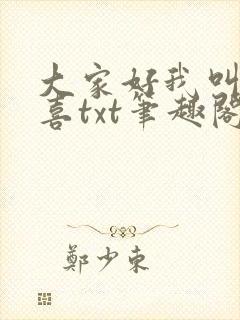 大家好我叫
喜txt笔趣阁
鄭少东